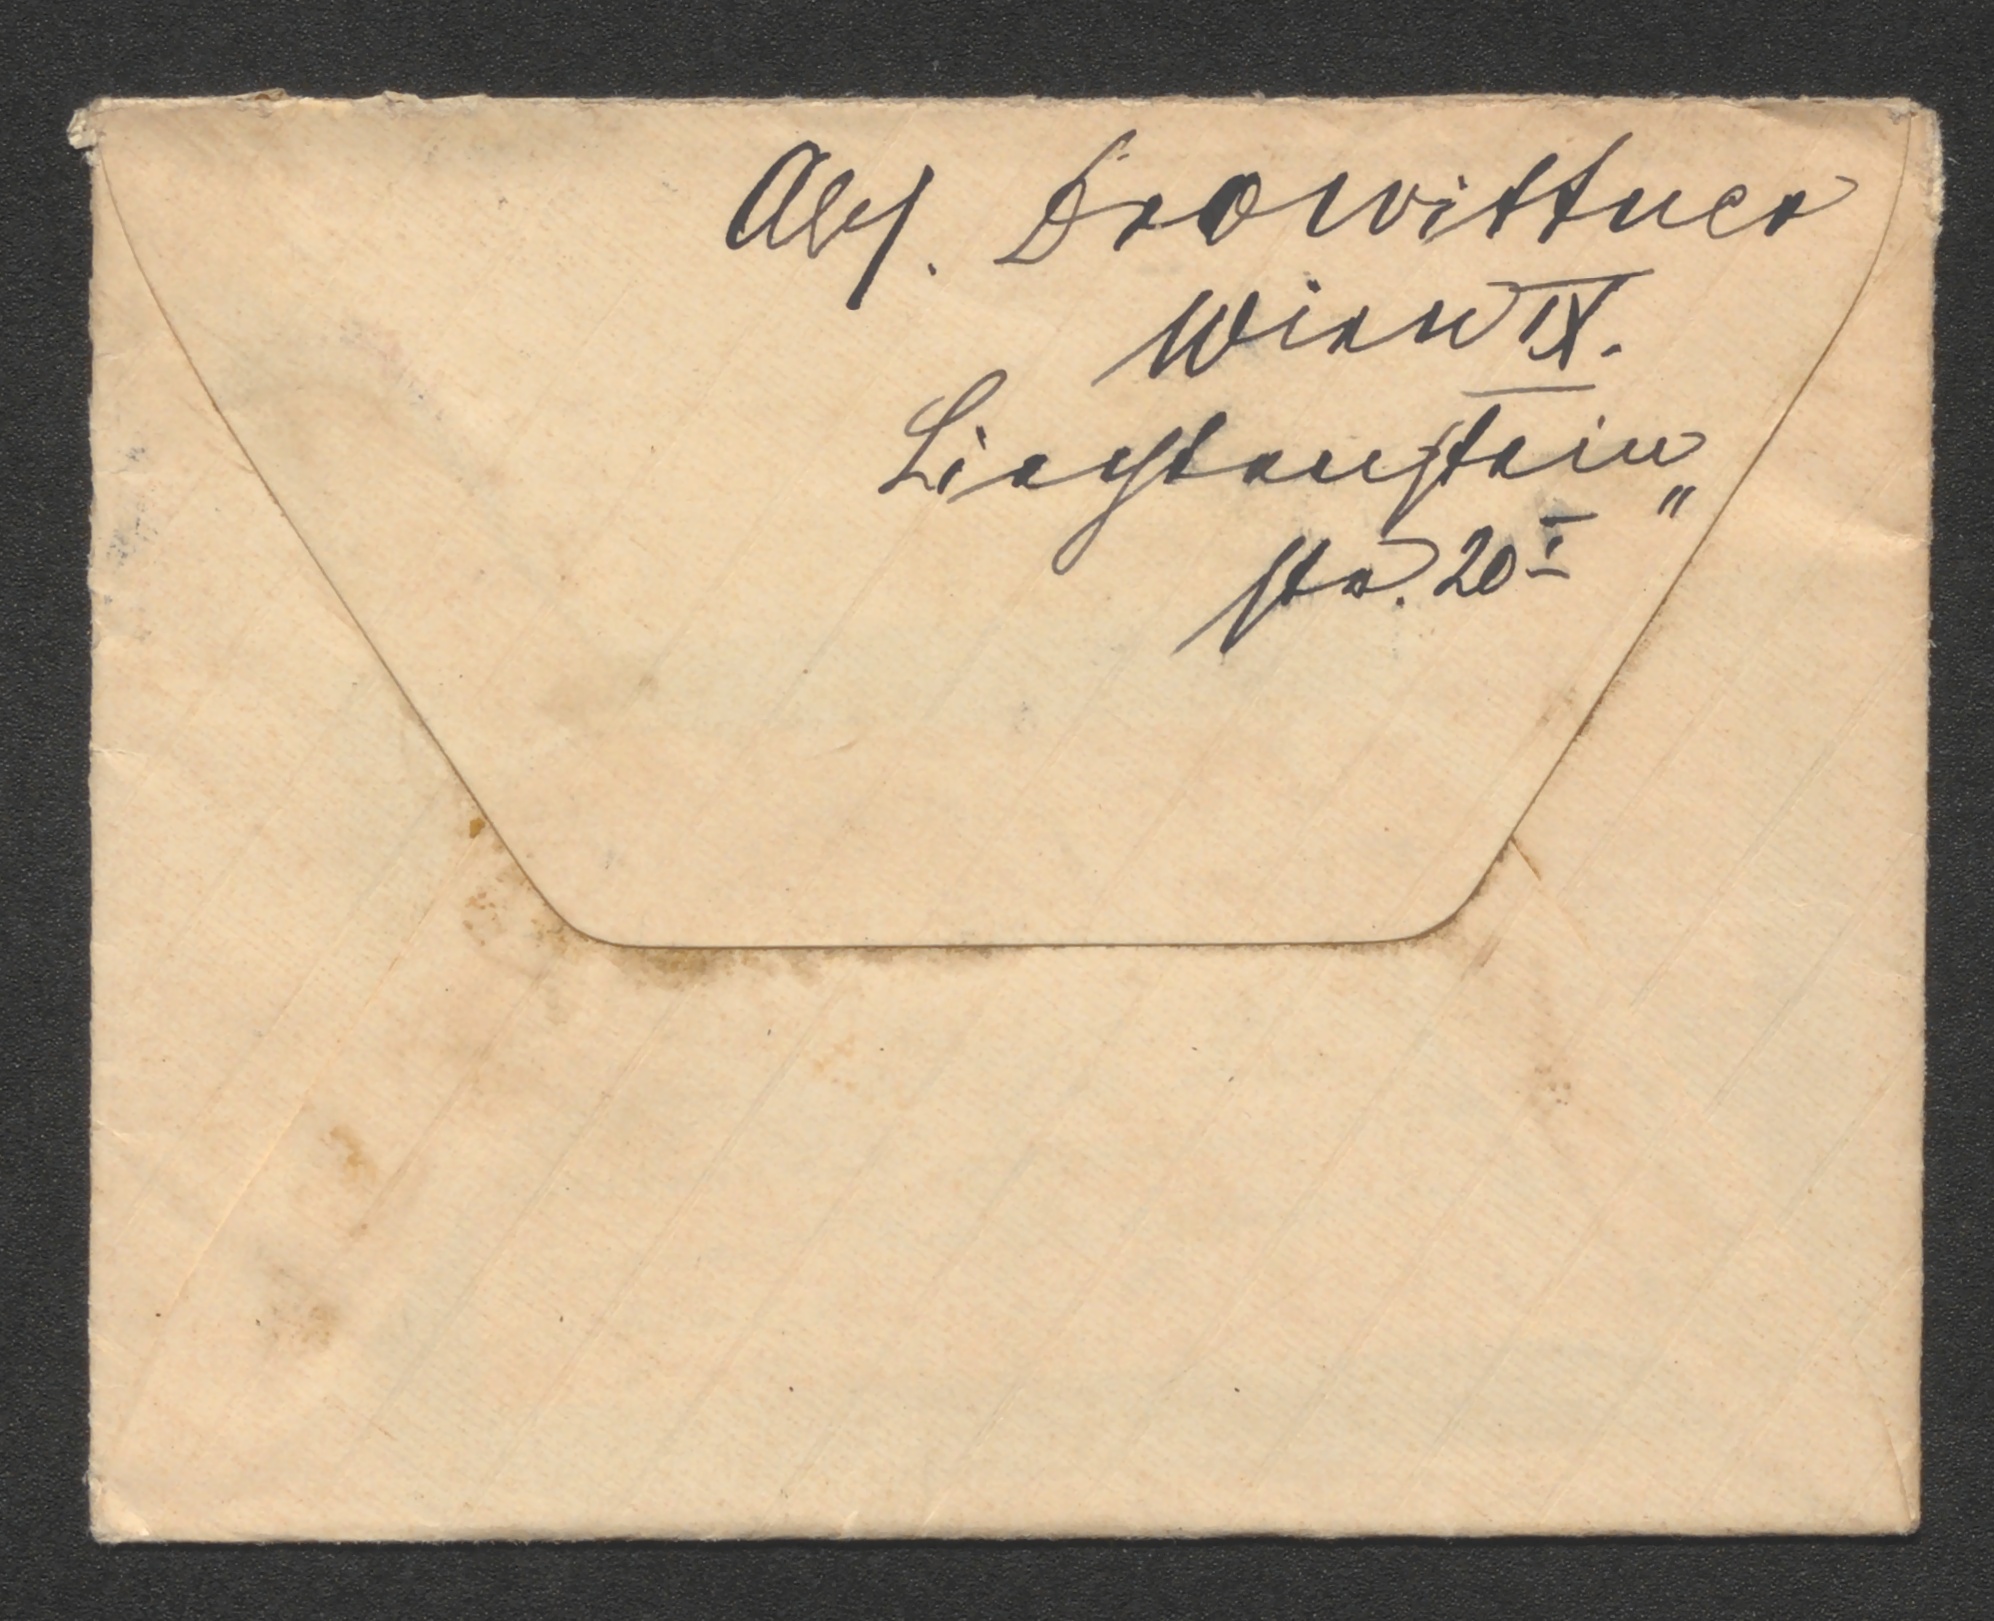 Abs. Drowittner
Wien IX.
Liechtenstein„
str. 20 I